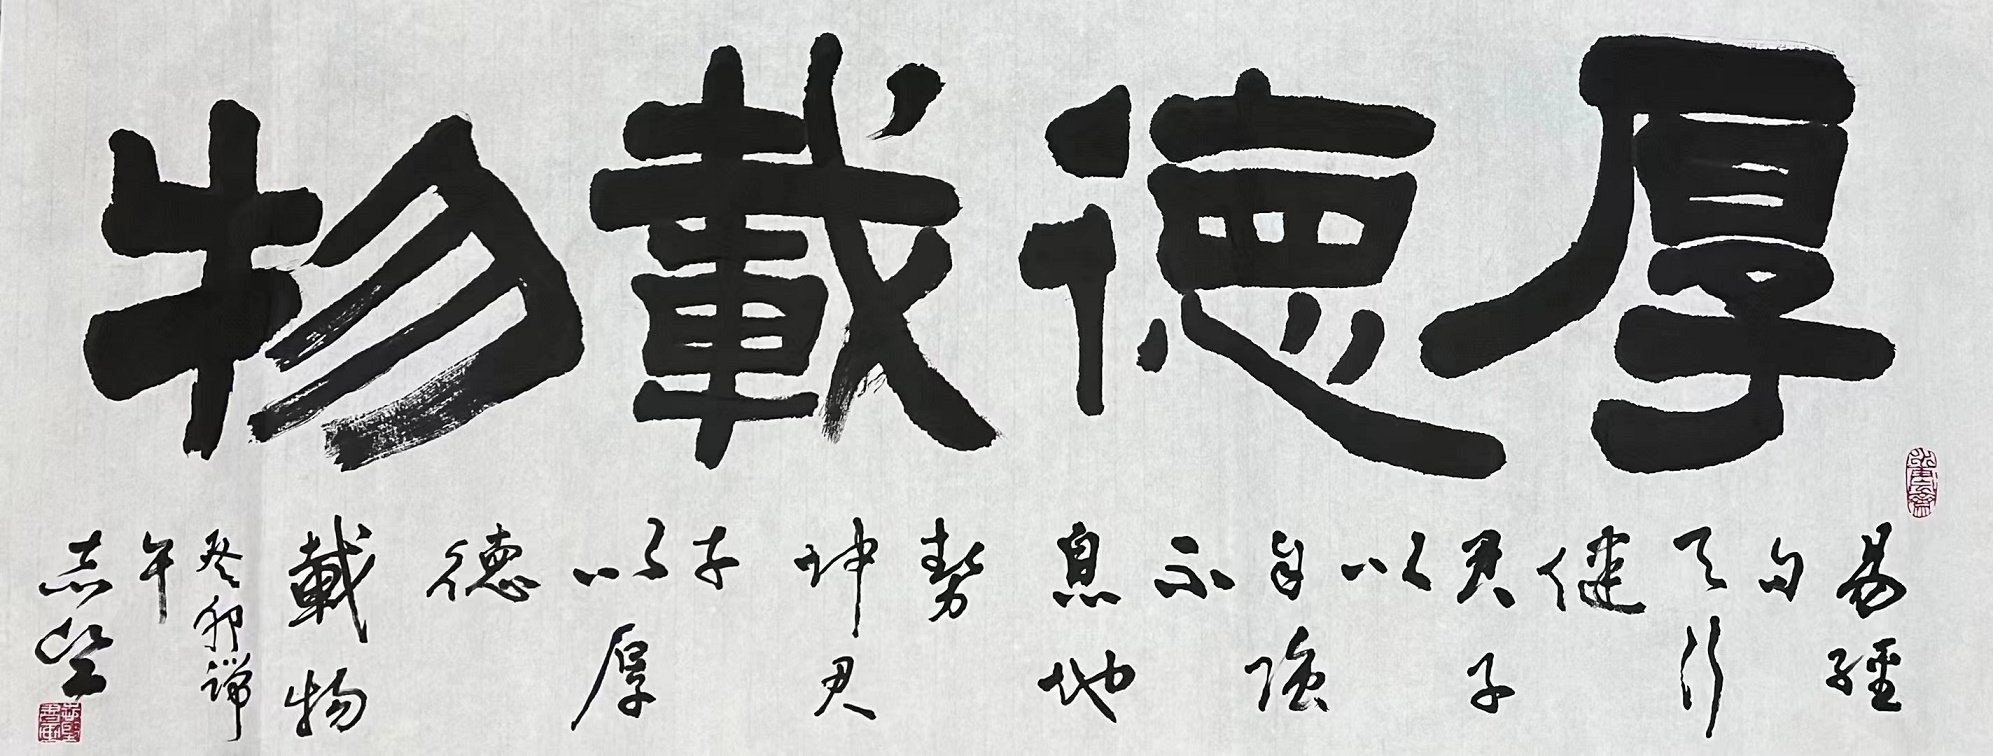 厚德載物
易經
句
天行
健
君子
以
自強
不
息地
勢
坤君
子
以厚
德
載物
癸卯端
午
志坚